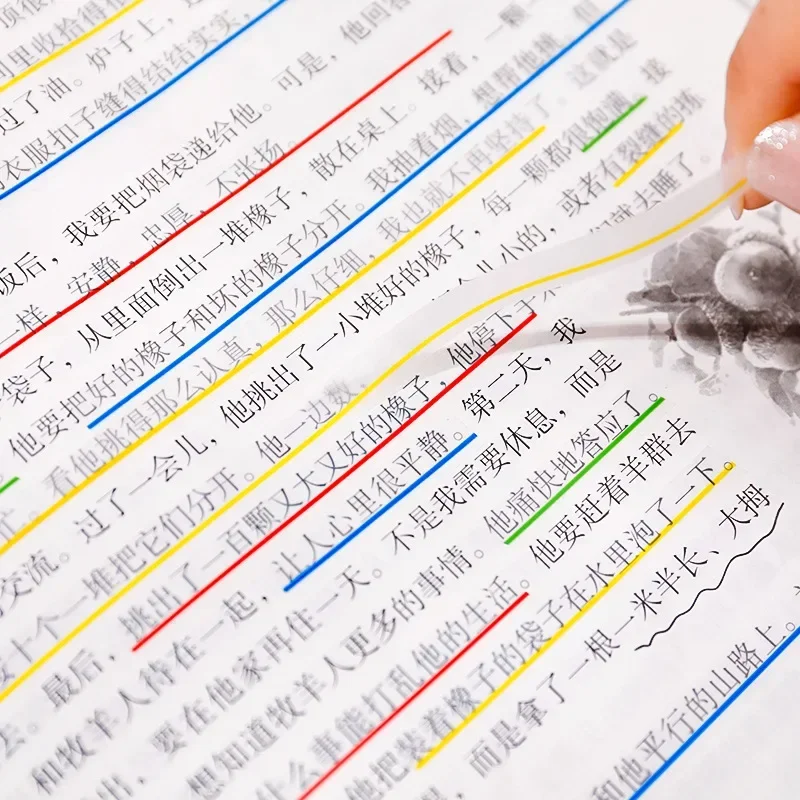 顶很
间里收拾得很
过了油。炉子上，
衣服扣子缝得结结实实，
饭后，我要把烟袋递给他。可是，他回答
一样，安静，忠厚，不张扬。
袋子，从里面倒出一堆橡子，散在桌上。接着，一颗一
他要把好的橡子和坏的橡子分开。我抽着烟，想帮他挑，但
忙。看他挑得那么认真，那么仔细，我也就不再坚持了。这就是
交流。过了一会儿，他挑出了一小堆好的橡子，每一颗都很饱满。接
十个一堆把它们分开。他一边数，个儿小的，或者有裂缝的拣
去。最后，挑出了一百颗又大又好的橡子，他停下手们就去睡了。
和牧羊人待在一起，让人心里很平静。第二天，我
出，要在他家再住一天。不是我需要休息，而是
想知道牧羊人更多的事情。他痛快地答应了。
什么事能打乱他的生活。他要赶着羊群去
他把装着橡子的袋子在水里泡了一下。
，而是拿了一根一米半长、大拇
和他平行的山路上。